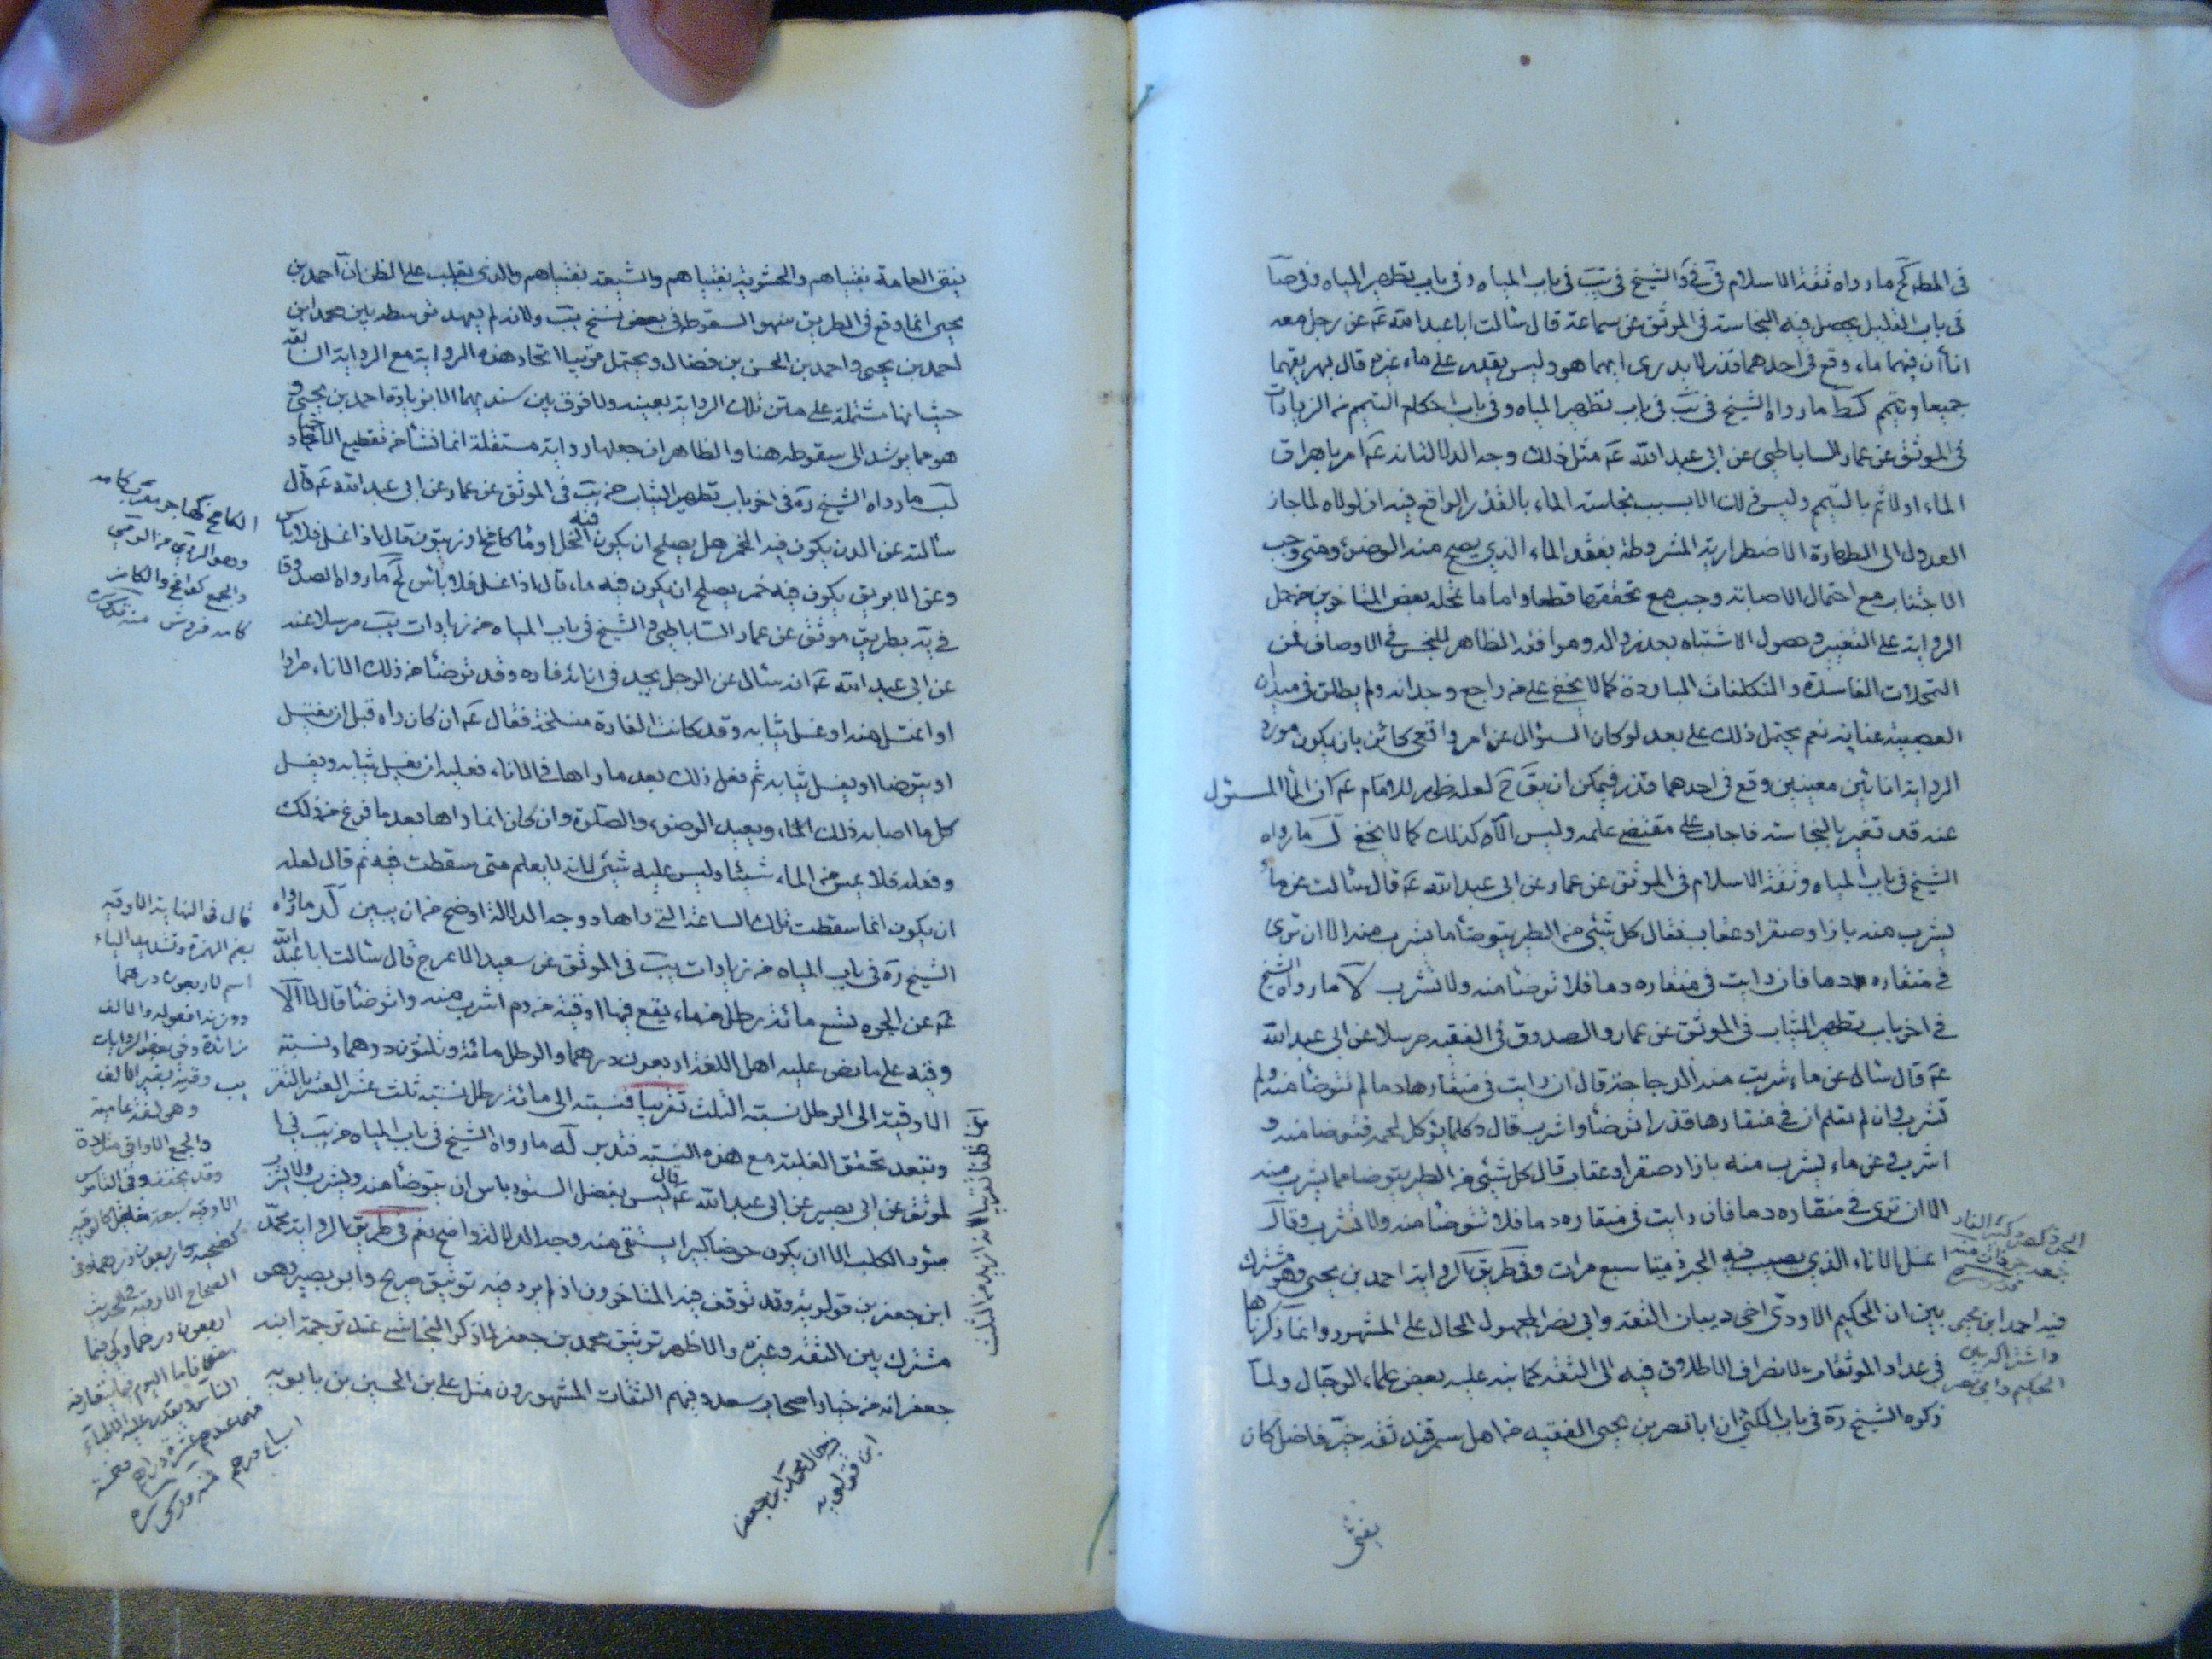 في المطهر كح ما رواه ثقة الاسلام في في والشيخ في يب في باب المياه وفي باب تطهير المياه وفي صا
في باب القليل يحصل فيه النجاسة في الموثق عن سماعة قال سألت ابا عبد الله عم عن رجل معه
اناآن فيهما ماء وقع في احدهما قذر لا يدري ايهما هو وليس يقدر على ماء غيره قال يهريقهما
جميعا ويتيمم كط ما رواه الشيخ في يب في باب تطهير المياه وفي باب احكام التيمم من الزيادات
في الموثق عن عمار الساباطي عن ابي عبد الله عم مثل ذلك وجه الدلالة انه عم امر باهراق
الماء اولا ثم بالتيمم وليس ذلك الا بسبب نجاسة الماء بالقذر الواقع فيه اذ لولاه لما جاز
العدول الى الطهارة الاضطرارية المشروطة بفقد الماء الذي يصح منه الوضوء ومتى وجب
الاجتناب مع احتمال الاصابة وجب مع تحققها قطعا واما ما تمحله بعض المتاخرين من حمل
الرواية على التغيير وحصول الاشتباه بعد زواله وموافقة الظاهر للنجس في الاوصاف فمن
التمحلات الفاسدة والتكلفات الباردة كما لا يخفى على من راجع وجدانه ولم يطلق في ميدان
العصبية عنانه نعم يحتمل ذلك على بعد لو كان السؤال عن امر واقعي كائن بان يكون مورد
الرواية انائين معينين وقع في احدهما قذر فيمكن ان يق ح لعله ظهر للامام عم ان الماء المسئول
عنه قد تغير بالنجاسة فاجاب على مقتضى علمه وليس الامر كذلك كما لا يخفى ل ما رواه
الشيخ في باب المياه وثقة الاسلام في الموثق عن عمار عن ابي عبد الله عم قال سألت عن ماء
يشرب منه باز او صقر او عقاب فقال كل شيء من الطير يتوضأ مما يشرب منه الا ان ترى
في منقاره دما فان رايت في منقاره دما فلا توضأ منه ولا تشرب لا ما رواه الشيخ
في اخر باب تطهير الثياب في الموثق عن عمار والصدوق في الفقيه مرسلا عن ابي عبد الله
عم قال سأل عن ماء شربت منه الدجاجة قال ان رايت في منقارها دما لم تتوضأ منه ولم
تشرب وان لم تعلم ان في منقارها قذرا توضأ واشرب قال وكلما يؤكل لحمه فتوضا منه و
اشرب وعن ماء يشرب منه باز او صقر او عقاب قال كل شيء من الطير يتوضا مما يشرب منه
الا ان ترى في منقاره دما فان رايت في منقاره دما فلا تتوضأ منه ولا تشرب وقال
اغسل الاناء الذي يصيب فيه الجرذ ميتا سبع مرات وفي طريق الرواية احمد بن يحيى وهو مشترك
بين ابن الحكيم الاودي اخي ديبان الثقة وابي نصر المجهول الحال على المشهور وانما ذكرناها
في عداد الموثقات لانصراف الاطلاق فيه الى الثقة كما نبه عليه بعض علماء الرجال ولما
ذكره الشيخ ره في باب الكنى ان ابا نصر بن يحيى الفقيه من اهل سمرقند ثقة خير فاضل كان
يفتي
الجرذ كصرد كبير الفار
فيه احمد ابن يحيى
واشتراكه بين
الحكيم وابي نصر
يفتي العامة بفتياهم والحشوية بفتياهم والشيعة بفتياهم والذي يغلب على الظن ان احمد بن
يحيى انما وقع في الطريق سهوا لسقوطه في بعض نسخ يب ولانه لم يعهد توسطه بين محمد ابن
احمد بن يحيى واحمد بن الحسن بن فضال ويحتمل قريبا اتحاد هذه الرواية مع الرواية السابقة
حيث انها مشتملة على متن تلك الرواية بعينه ولا فرق بين سنديهما الا بزيادة احمد بن يحيى و
هو مما يرشد الى سقوطه هنا والظاهر ان جعلها رواية مستقلة انما نشأ من تقطيع الاخبار
لب ما رواه الشيخ ره في اخر باب تطهير الثياب من يب في الموثق عن عمار عن ابي عبد الله عم قال
سألته عن الدن يكون فيه الخمر هل يصلح ان يكون فيه الخل او ماء كامخ او زيتون قال اذا غسل فلا باس
وعن الابريق يكون فيه خمر يصلح ان يكون فيه ماء قال اذا غسل فلا بأس لج ما رواه الصدوق
في يه بطريق موثق عن عمار الساباطي والشيخ في باب المياه من زيادات يب مرسلا عنه
عن ابي عبد الله عم انه سأل عن الرجل يجد في انائه فاره وقد توضأ من ذلك الاناء مرارا
او اغتسل منه او غسل ثيابه وقد كانت الفارة منسلخة فقال عم ان كان راه قبل ان يغتسل
او يتوضا او يغسل ثيابه ثم فعل ذلك بعد ما راها في الاناء فعليه ان يغسل ثيابه ويغسل
كل ما اصابه ذلك الماء ويعيد الوضوء والصلوة وان كان انما راها بعد ما فرغ من ذلك
وفعله فلا يمس من الماء شيئا وليس عليه شيء لانه لا يعلم متى سقطت فيه ثم قال لعله
ان يكون انما سقطت تلك الساعة التي راها ووجه الدلالة اوضح من ان يبين لد ما رواه
الشيخ ره في باب المياه من زيادات يب في الموثق عن سعيد الاعرج قال سألت ابا عبد الله
عم عن الجره تسع مائة رطل من ماء يقع فيها اوقية من دم اشرب منه واتوضأ قال لا الا
وقيه على ما نص عليه اهل اللغة اربعون درهما والرطل مائة وثلثون درهما ونسبة
الاوقية الى الرطل نسبة الثلث تقريبا فنسبته الى مائة رطل نسبة ثلث عشر العشر بالتقريب
ويبعد تحقق الغلبة مع هذه النسبة فتدبر له ما رواه الشيخ في باب المياه من يب في ا
لموثق عن ابي بصير عن ابي عبد الله عم قال ليس بفضل السنور باس ان يتوضأ منه ويشرب ولا يشرب
سؤر الكلب الا ان يكون حوضا كبيرا يستقى منه وجه الدلالة واضح نعم في طريق الرواية محمد
ابن جعفر بن قولويه وقد توقف فيه المتاخرون اذ لم يرد فيه توثيق صريح وابو بصير وهو
مشترك بين الثقة وغيره والاظهر توثيق محمد بن جعفر لما ذكر النجاشي عند ترجمة ابنه
جعفر انه من خيار اصحاب سعد وفيهم الثقات المشهورون مثل علي بن الحسين بن بابويه
حال محمد ابن جعفر
ابن قولويه
الكامخ كهاجر معرب كامه
وهو الردي من المري
والجمع كوامخ
قال في النهاية الاوقية
بضم الهمزة وتشديد الياء
اسم لاربعون درهما
ووزنه افعوله والالف
زائدة وفي بعض الروايات
وقية بغير الالف
وهي لغة عامية
والجمع الاواقي مشددة
وقد يخفف